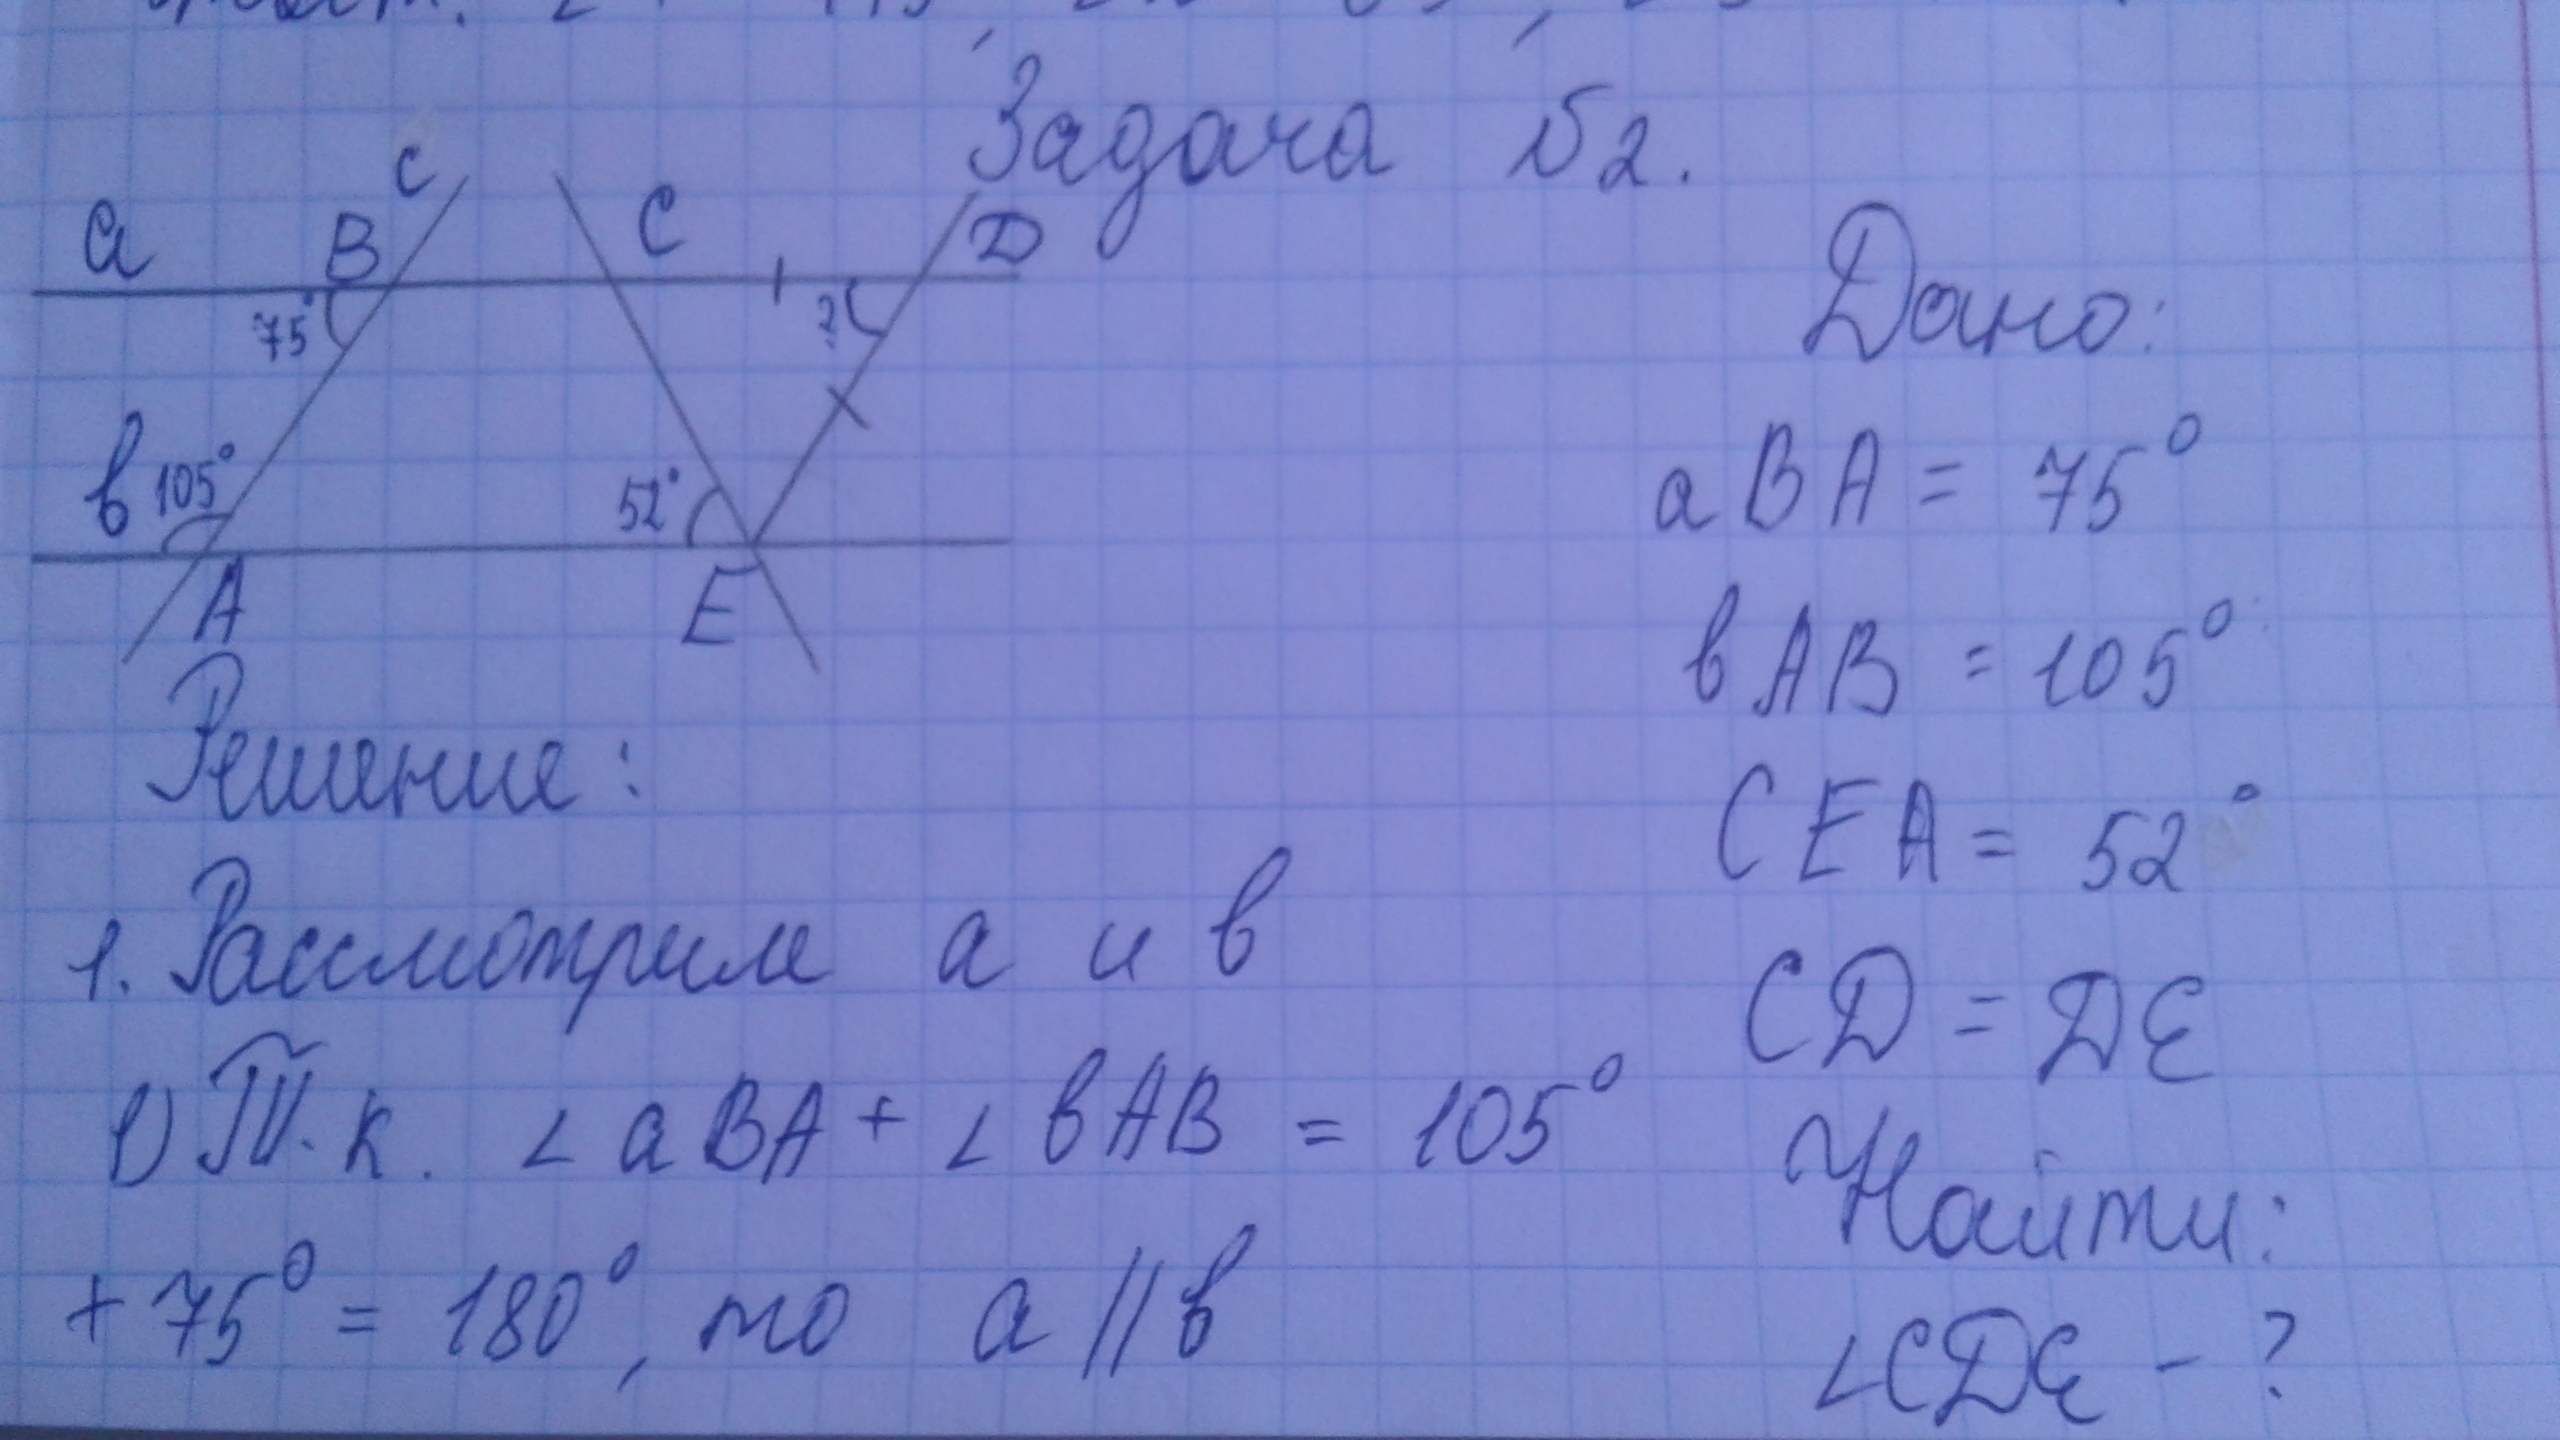 Задача №2.
a B c C D
75°
?
в 105°
52°
A E
Дано:
aBA = 75°
вAB = 105°
CEA = 52°
CD = DE
Найти:
∠CDE - ?
Решение:
1. Рассмотрим a и в
1) Т.к. ∠aBA + ∠вAB = 105°
+ 75° = 180°, то a || в